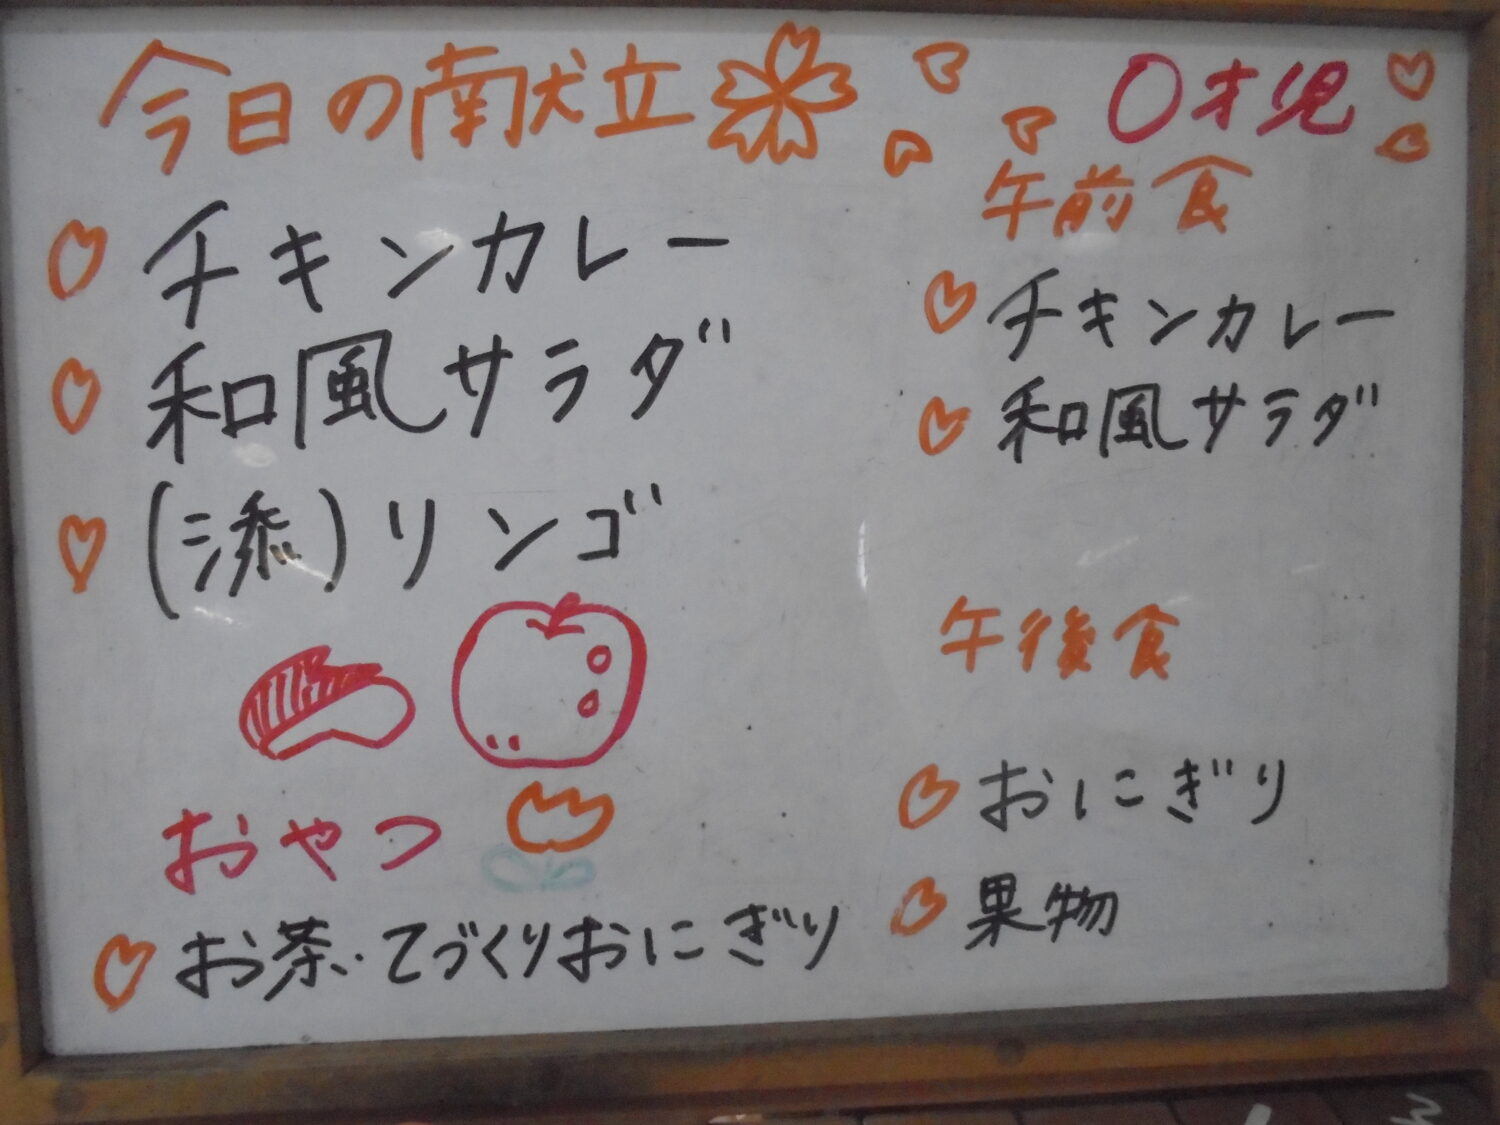 今日の献立
チキンカレー
和風サラダ
(添)リンゴ
おやつ
お茶・てづくりおにぎり
0才児
午前食
チキンカレー
和風サラダ
午後食
おにぎり
果物